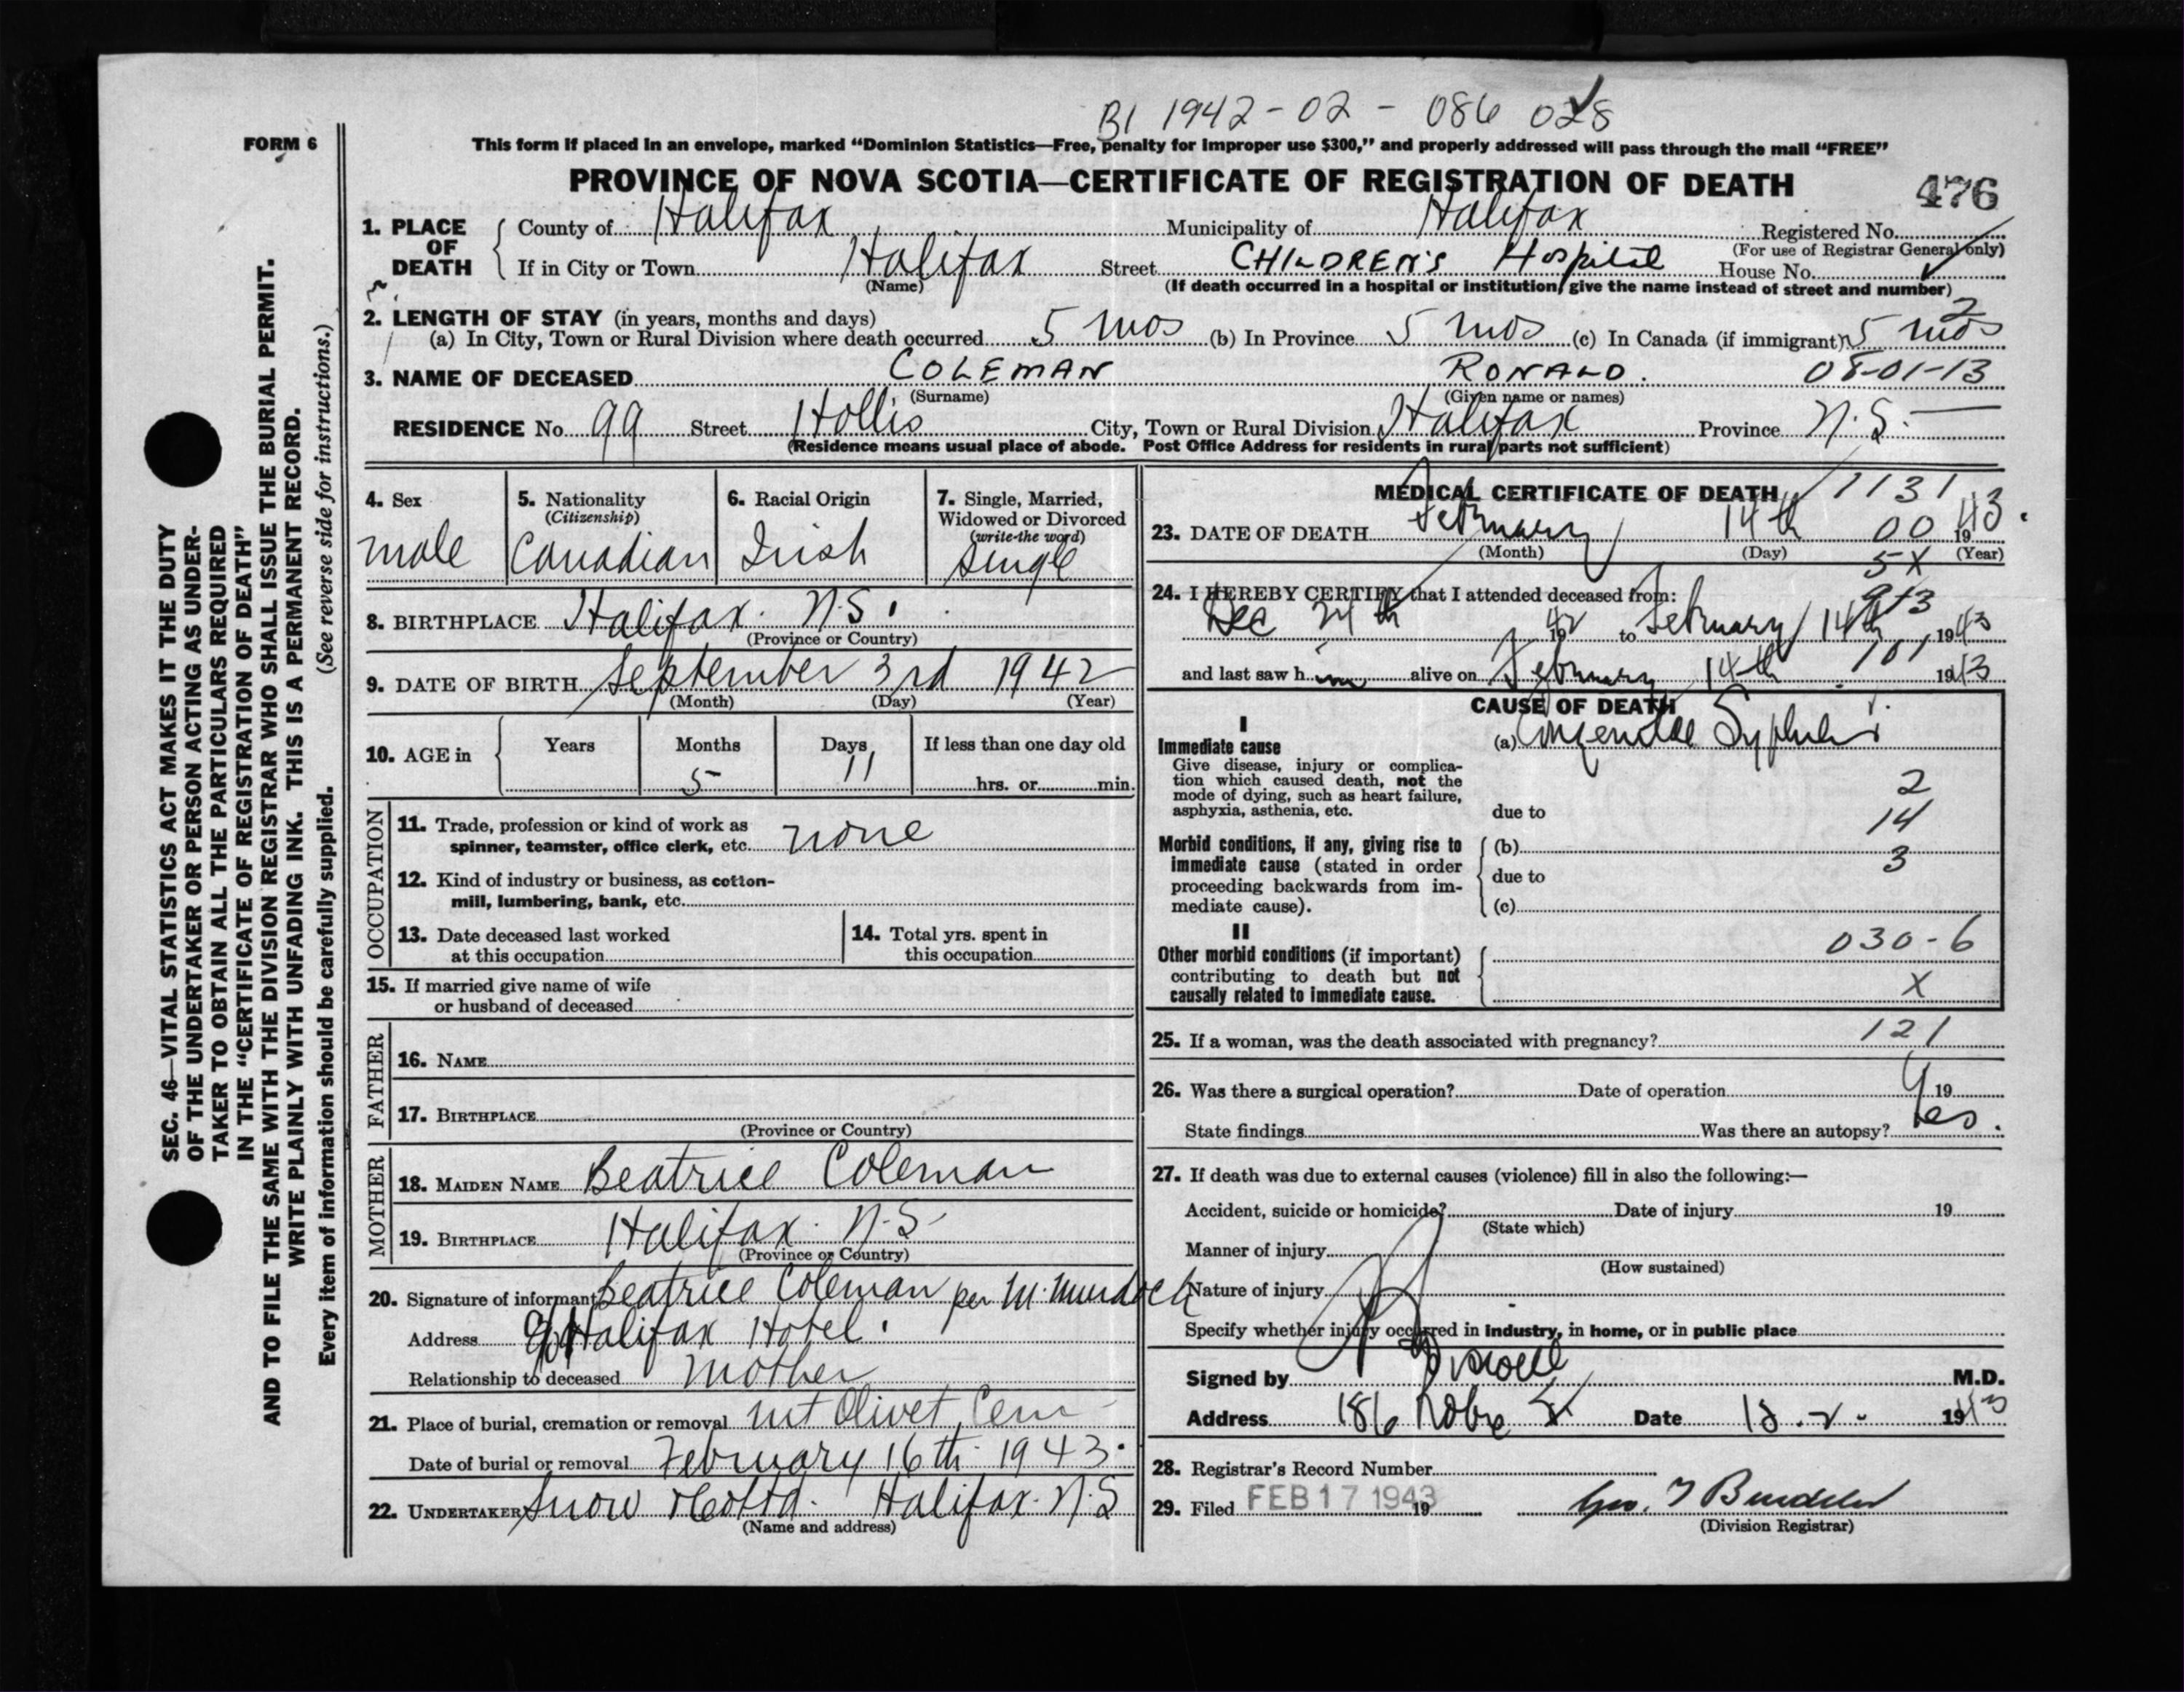 BI 1942-02-086 028
FORM 6
This form if placed in an envelope, marked “Dominion Statistics—Free, penalty for improper use $300,” and properly addressed will pass through the mail “FREE”
PROVINCE OF NOVA SCOTIA—CERTIFICATE OF REGISTRATION OF DEATH 476
1. PLACE OF DEATH County of Halifax Municipality of Halifax Registered No.
(For use of Registrar General only)
If in City or Town Halifax Street CHILDREN'S Hospital House No.
(Name) (If death occurred in a hospital or institution, give the name instead of street and number)
2. LENGTH OF STAY (in years, months and days) 2
(a) In City, Town or Rural Division where death occurred 5 mos (b) In Province 5 mos (c) In Canada (if immigrant) 5 mos
3. NAME OF DECEASED COLEMAN RONALD. 08-01-13
(Surname) (Given name or names)
RESIDENCE No. 99 Street Hollis City, Town or Rural Division Halifax Province N.S.
(Residence means usual place of abode. Post Office Address for residents in rural parts not sufficient)
4. Sex 5. Nationality 6. Racial Origin 7. Single, Married,
(Citizenship) Widowed or Divorced
(write the word)
male Canadian Irish single
8. BIRTHPLACE Halifax. N.S.
(Province or Country)
9. DATE OF BIRTH September 3rd 1942
(Month) (Day) (Year)
10. AGE in Years Months Days If less than one day old
5 11 hrs. or min.
OCCUPATION
11. Trade, profession or kind of work as
spinner, teamster, office clerk, etc. none
12. Kind of industry or business, as cotton-
mill, lumbering, bank, etc.
13. Date deceased last worked
at this occupation
14. Total yrs. spent in
this occupation
15. If married give name of wife
or husband of deceased
FATHER
16. NAME
17. BIRTHPLACE
(Province or Country)
MOTHER
18. MAIDEN NAME Beatrice Coleman
19. BIRTHPLACE Halifax. N.S.
(Province or Country)
20. Signature of informant Beatrice Coleman per M. Murdoch
Address c/o Halifax Hotel.
Relationship to deceased Mother
21. Place of burial, cremation or removal Mt Olivet Cem
Date of burial or removal February 16th 1943.
22. UNDERTAKER Snow & Co Ltd. Halifax. N.S
(Name and address)
MEDICAL CERTIFICATE OF DEATH 1131
23. DATE OF DEATH February 14th 00 1943.
(Month) (Day) (Year)
5X
24. I HEREBY CERTIFY that I attended deceased from:
913
Dec 24th 1942 to February 14th 1943
and last saw him alive on February 14th 101 1943
CAUSE OF DEATH
I
Immediate cause
(a) Congenital Syphilis
Give disease, injury or complica-
tion which caused death, not the
mode of dying, such as heart failure,
asphyxia, asthenia, etc.
2
due to
14
Morbid conditions, if any, giving rise to
immediate cause (stated in order
proceeding backwards from im-
mediate cause).
(b)
3
due to
(c)
II
Other morbid conditions (if important)
contributing to death but not
causally related to immediate cause.
030-6
X
25. If a woman, was the death associated with pregnancy? 121
26. Was there a surgical operation? Date of operation 19
State findings Was there an autopsy? Yes.
27. If death was due to external causes (violence) fill in also the following:—
Accident, suicide or homicide? Date of injury 19
(State which)
Manner of injury
(How sustained)
Nature of injury
Specify whether injury occurred in industry, in home, or in public place
Signed by M.D.
Address 186 Robie St Date 18.2. 1943
28. Registrar's Record Number
29. Filed FEB 17 1943 19 Geo.
(Division Registrar)
SEC. 46—VITAL STATISTICS ACT MAKES IT THE DUTY
OF THE UNDERTAKER OR PERSON ACTING AS UNDER-
TAKER TO OBTAIN ALL THE PARTICULARS REQUIRED
IN THE “CERTIFICATE OF REGISTRATION OF DEATH”
AND TO FILE THE SAME WITH THE DIVISION REGISTRAR WHO SHALL ISSUE THE BURIAL PERMIT.
WRITE PLAINLY WITH UNFADING INK. THIS IS A PERMANENT RECORD.
Every item of information should be carefully supplied. (See reverse side for instructions.)